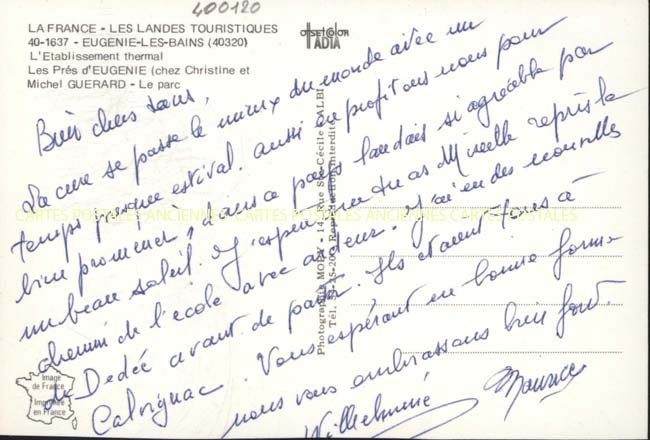 400120
LA FRANCE - LES LANDES TOURISTIQUES
40-1637 - EUGENIE-LES-BAINS (40320)
L'Etablissement thermal
Les Prés d'EUGENIE (chez Christine et
Michel GUERARD - Le parc
OFFSETCOLOR
ADIA
Bien chers tous,
La cure se passe le mieux du monde avec un
temps presque estival. aussi en profitons nous pour
bien promener, dans ce pays landais si agréable par
un beau soleil. J'espère que tu as Mireille repris le
chemin de l'école avec ardeur. J'ai eu des nouvelles
de Dedée avant de partir. Ils étaient tous à
Calvignac. Vous espérant en bonne forme
nous vous embrassons bien fort.
Wilhelminie Maurice
Photographie 14, Rue Ste-Cécile ALBI
Tél. Reproduction interdite
CARTES POSTALES ANCIENNES CARTES POSTALES ANCIENNES CARTES POSTALES
Image
de France
Imprimée
en France